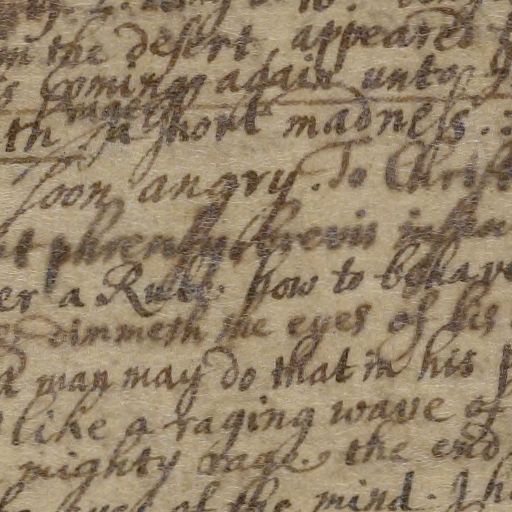 the desert, appeared
coming again unto
Anger
th a short madness.
soon angry. To Christ
er a Rule. how to behave
dimmeth the eyes of his
man may do that in his
like a raging wave of
mighty rage. the end
eyes of the mind.